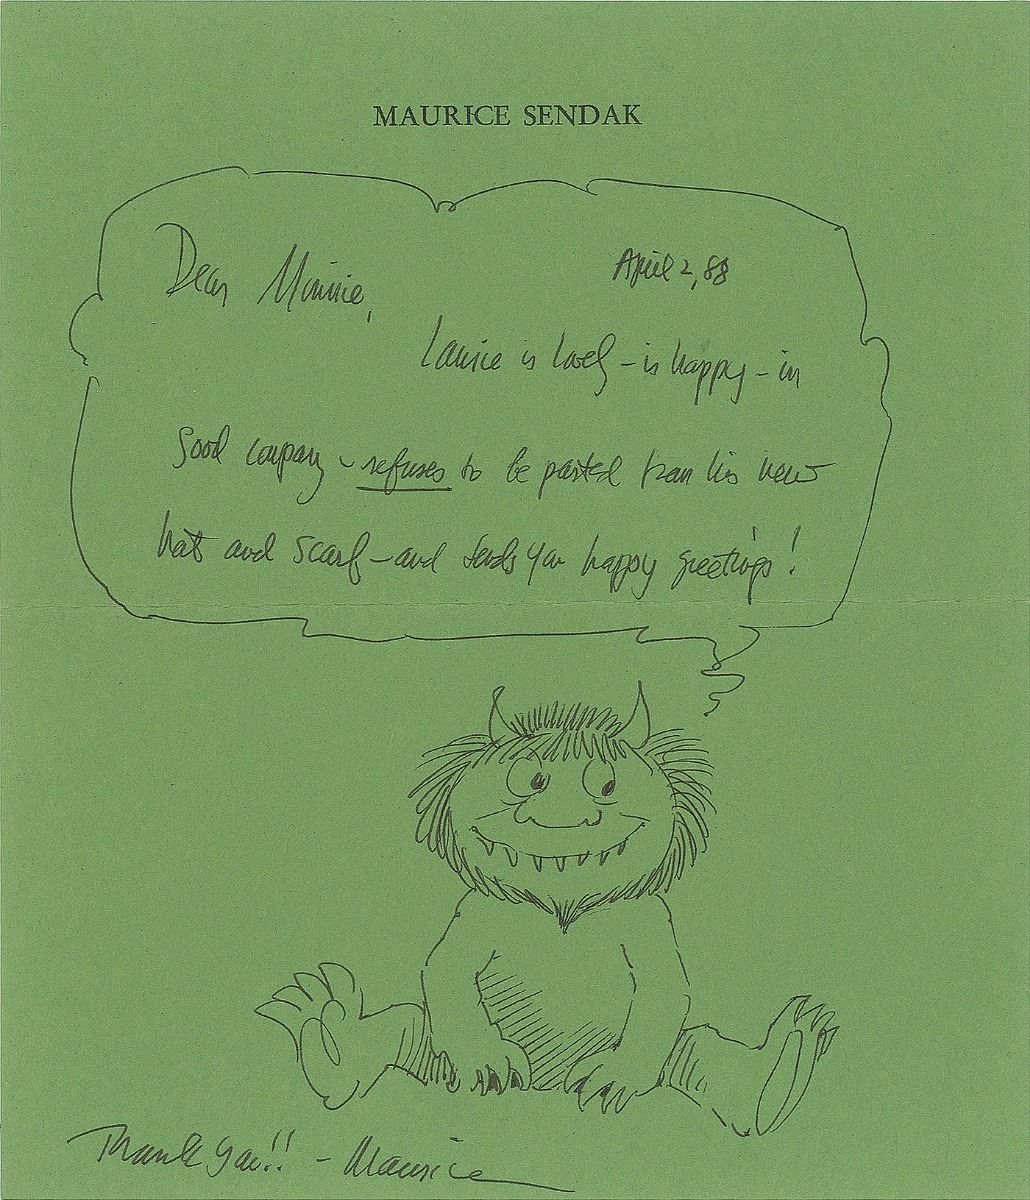 MAURICE SENDAK
Dear Minnie,
April 2, 88
is lovely – is happy – in
good company – refuses to be parted from his new
hat and scarf – and sends you happy greetings!
Thank you!! – Maurice